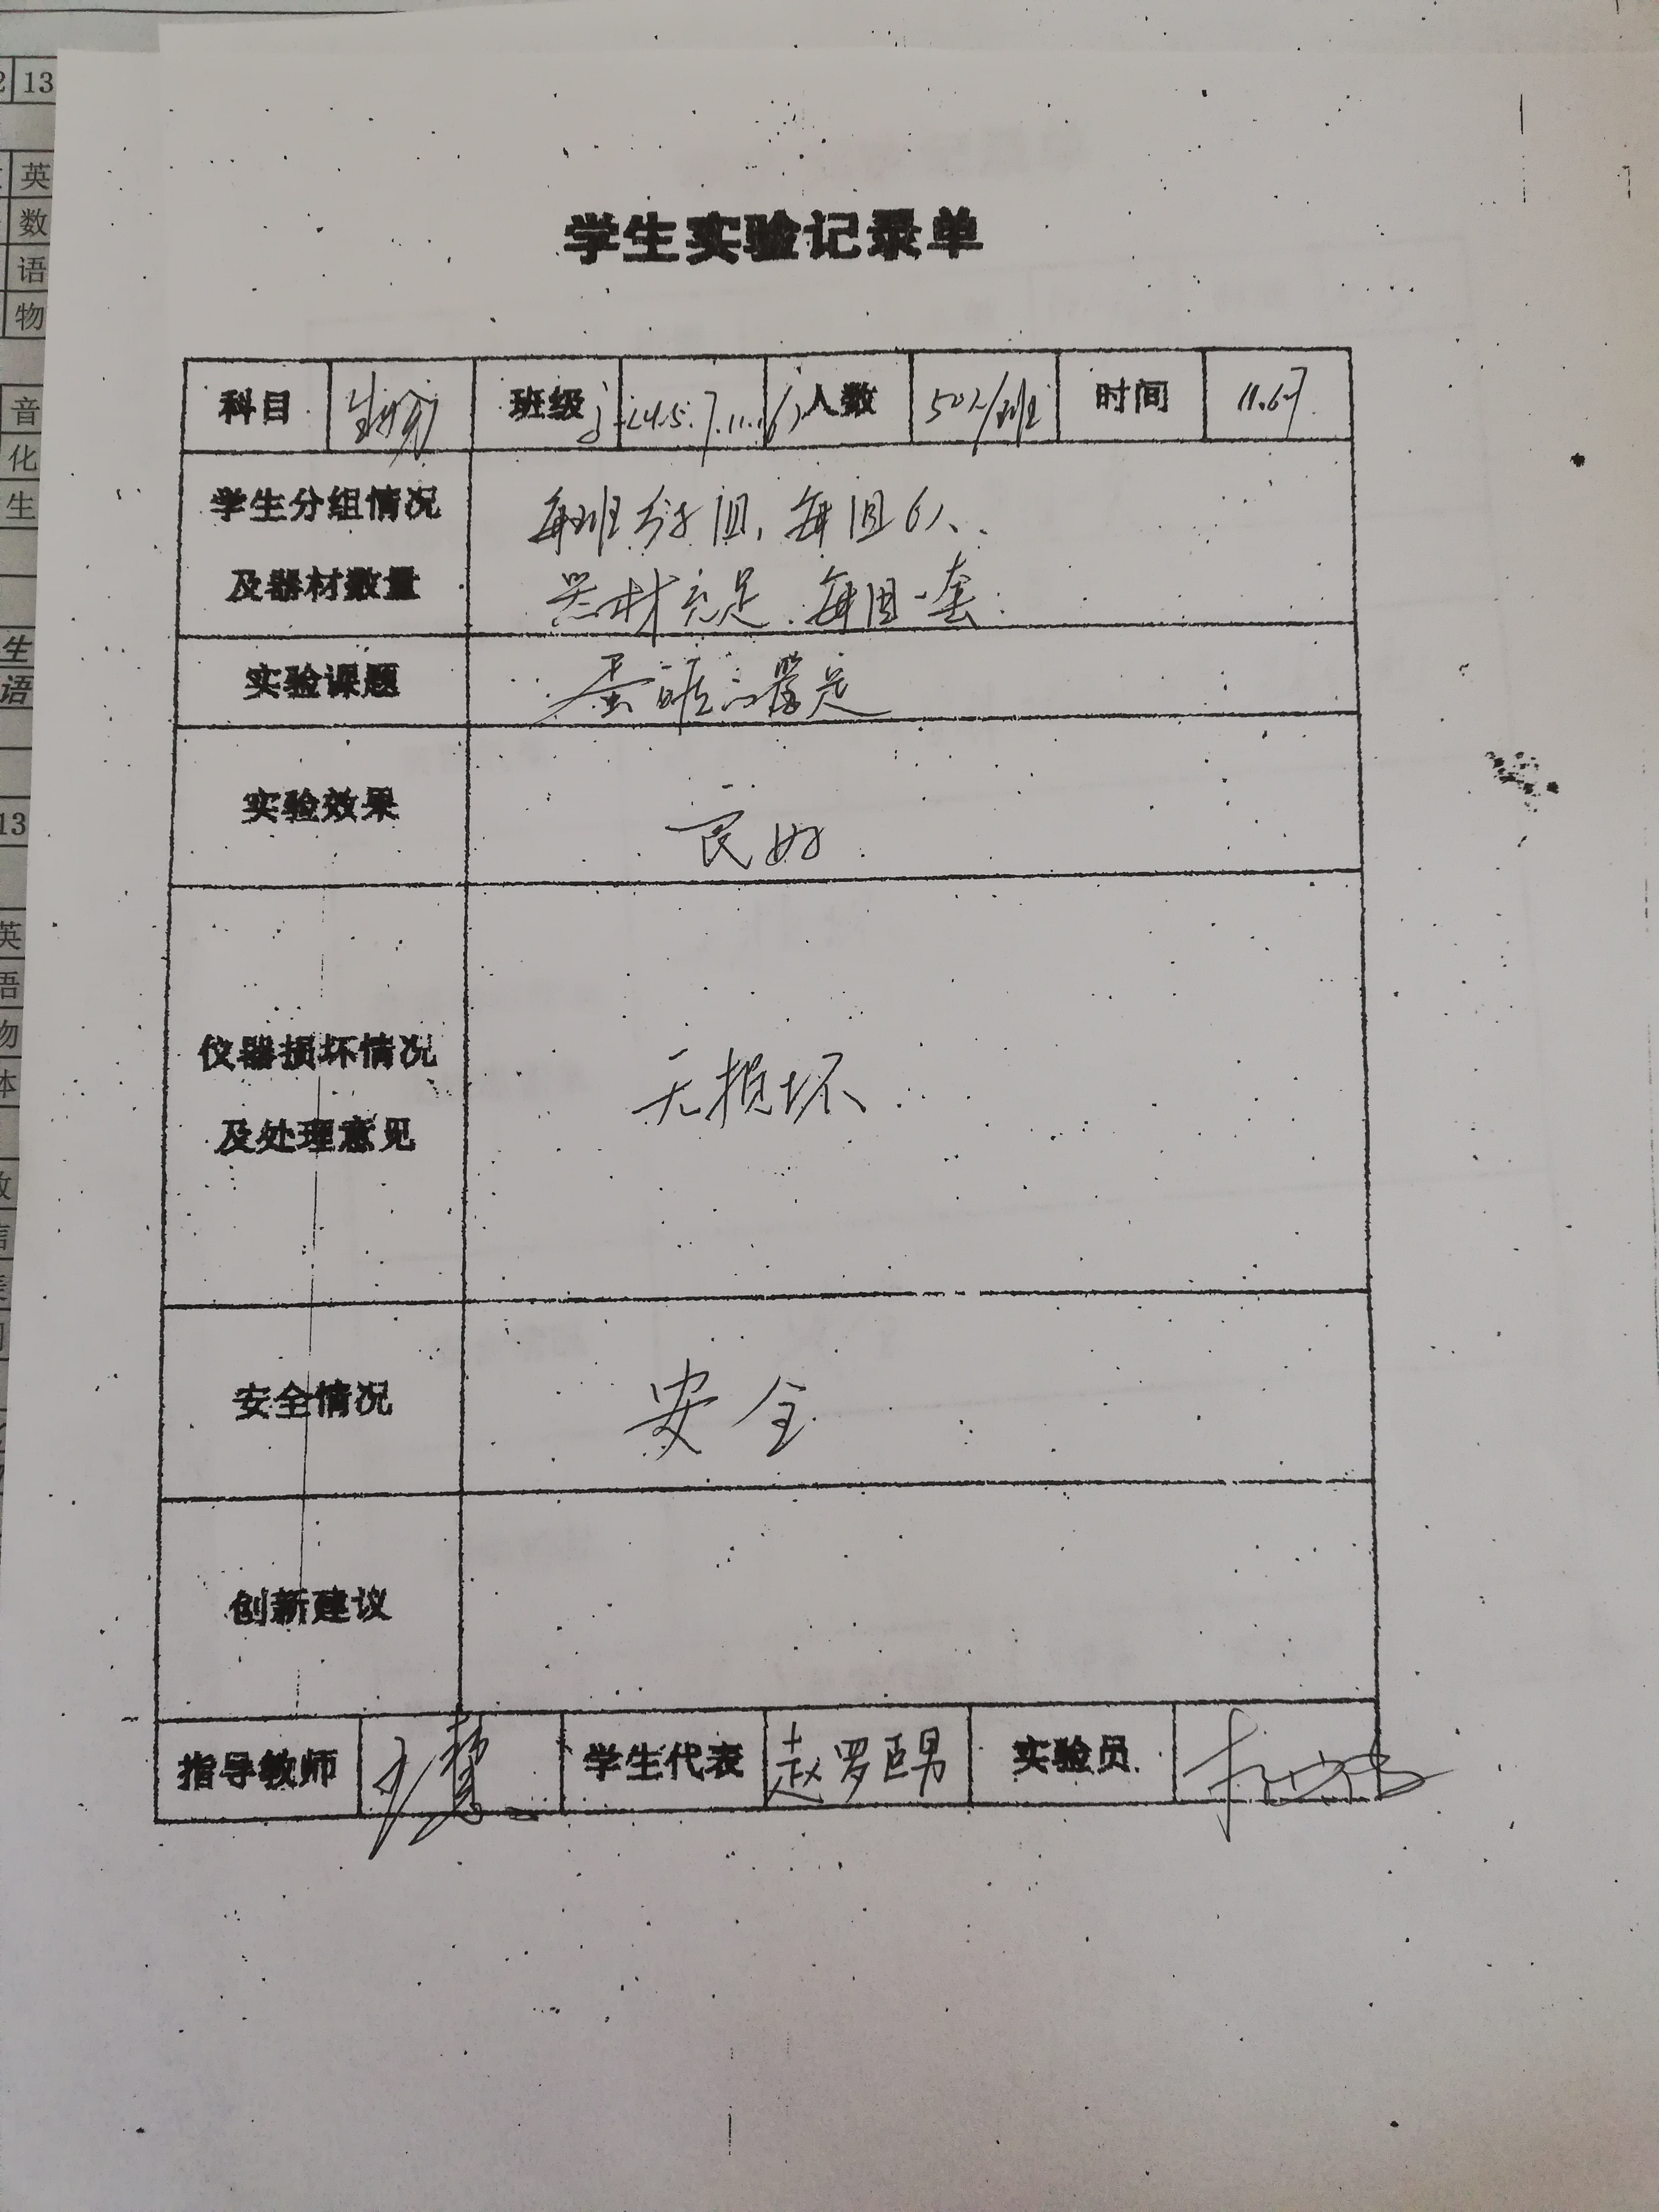 学生实验记录单
科目 生物 班级 人数 50人/班 时间 11.6-7
学生分组情况 每班分8组, 每组6人、
及器材数量 器材充足. 每组一套.
实验课题 蛋白质的鉴定
实验效果 良好.
仪器损坏情况
及处理意见
无损坏
安全情况 安全
创新建议
指导教师 学生代表 赵罗臣男 实验员
2 13
英
数
语
物
音
化
生
生
语
13
英
语
物
体